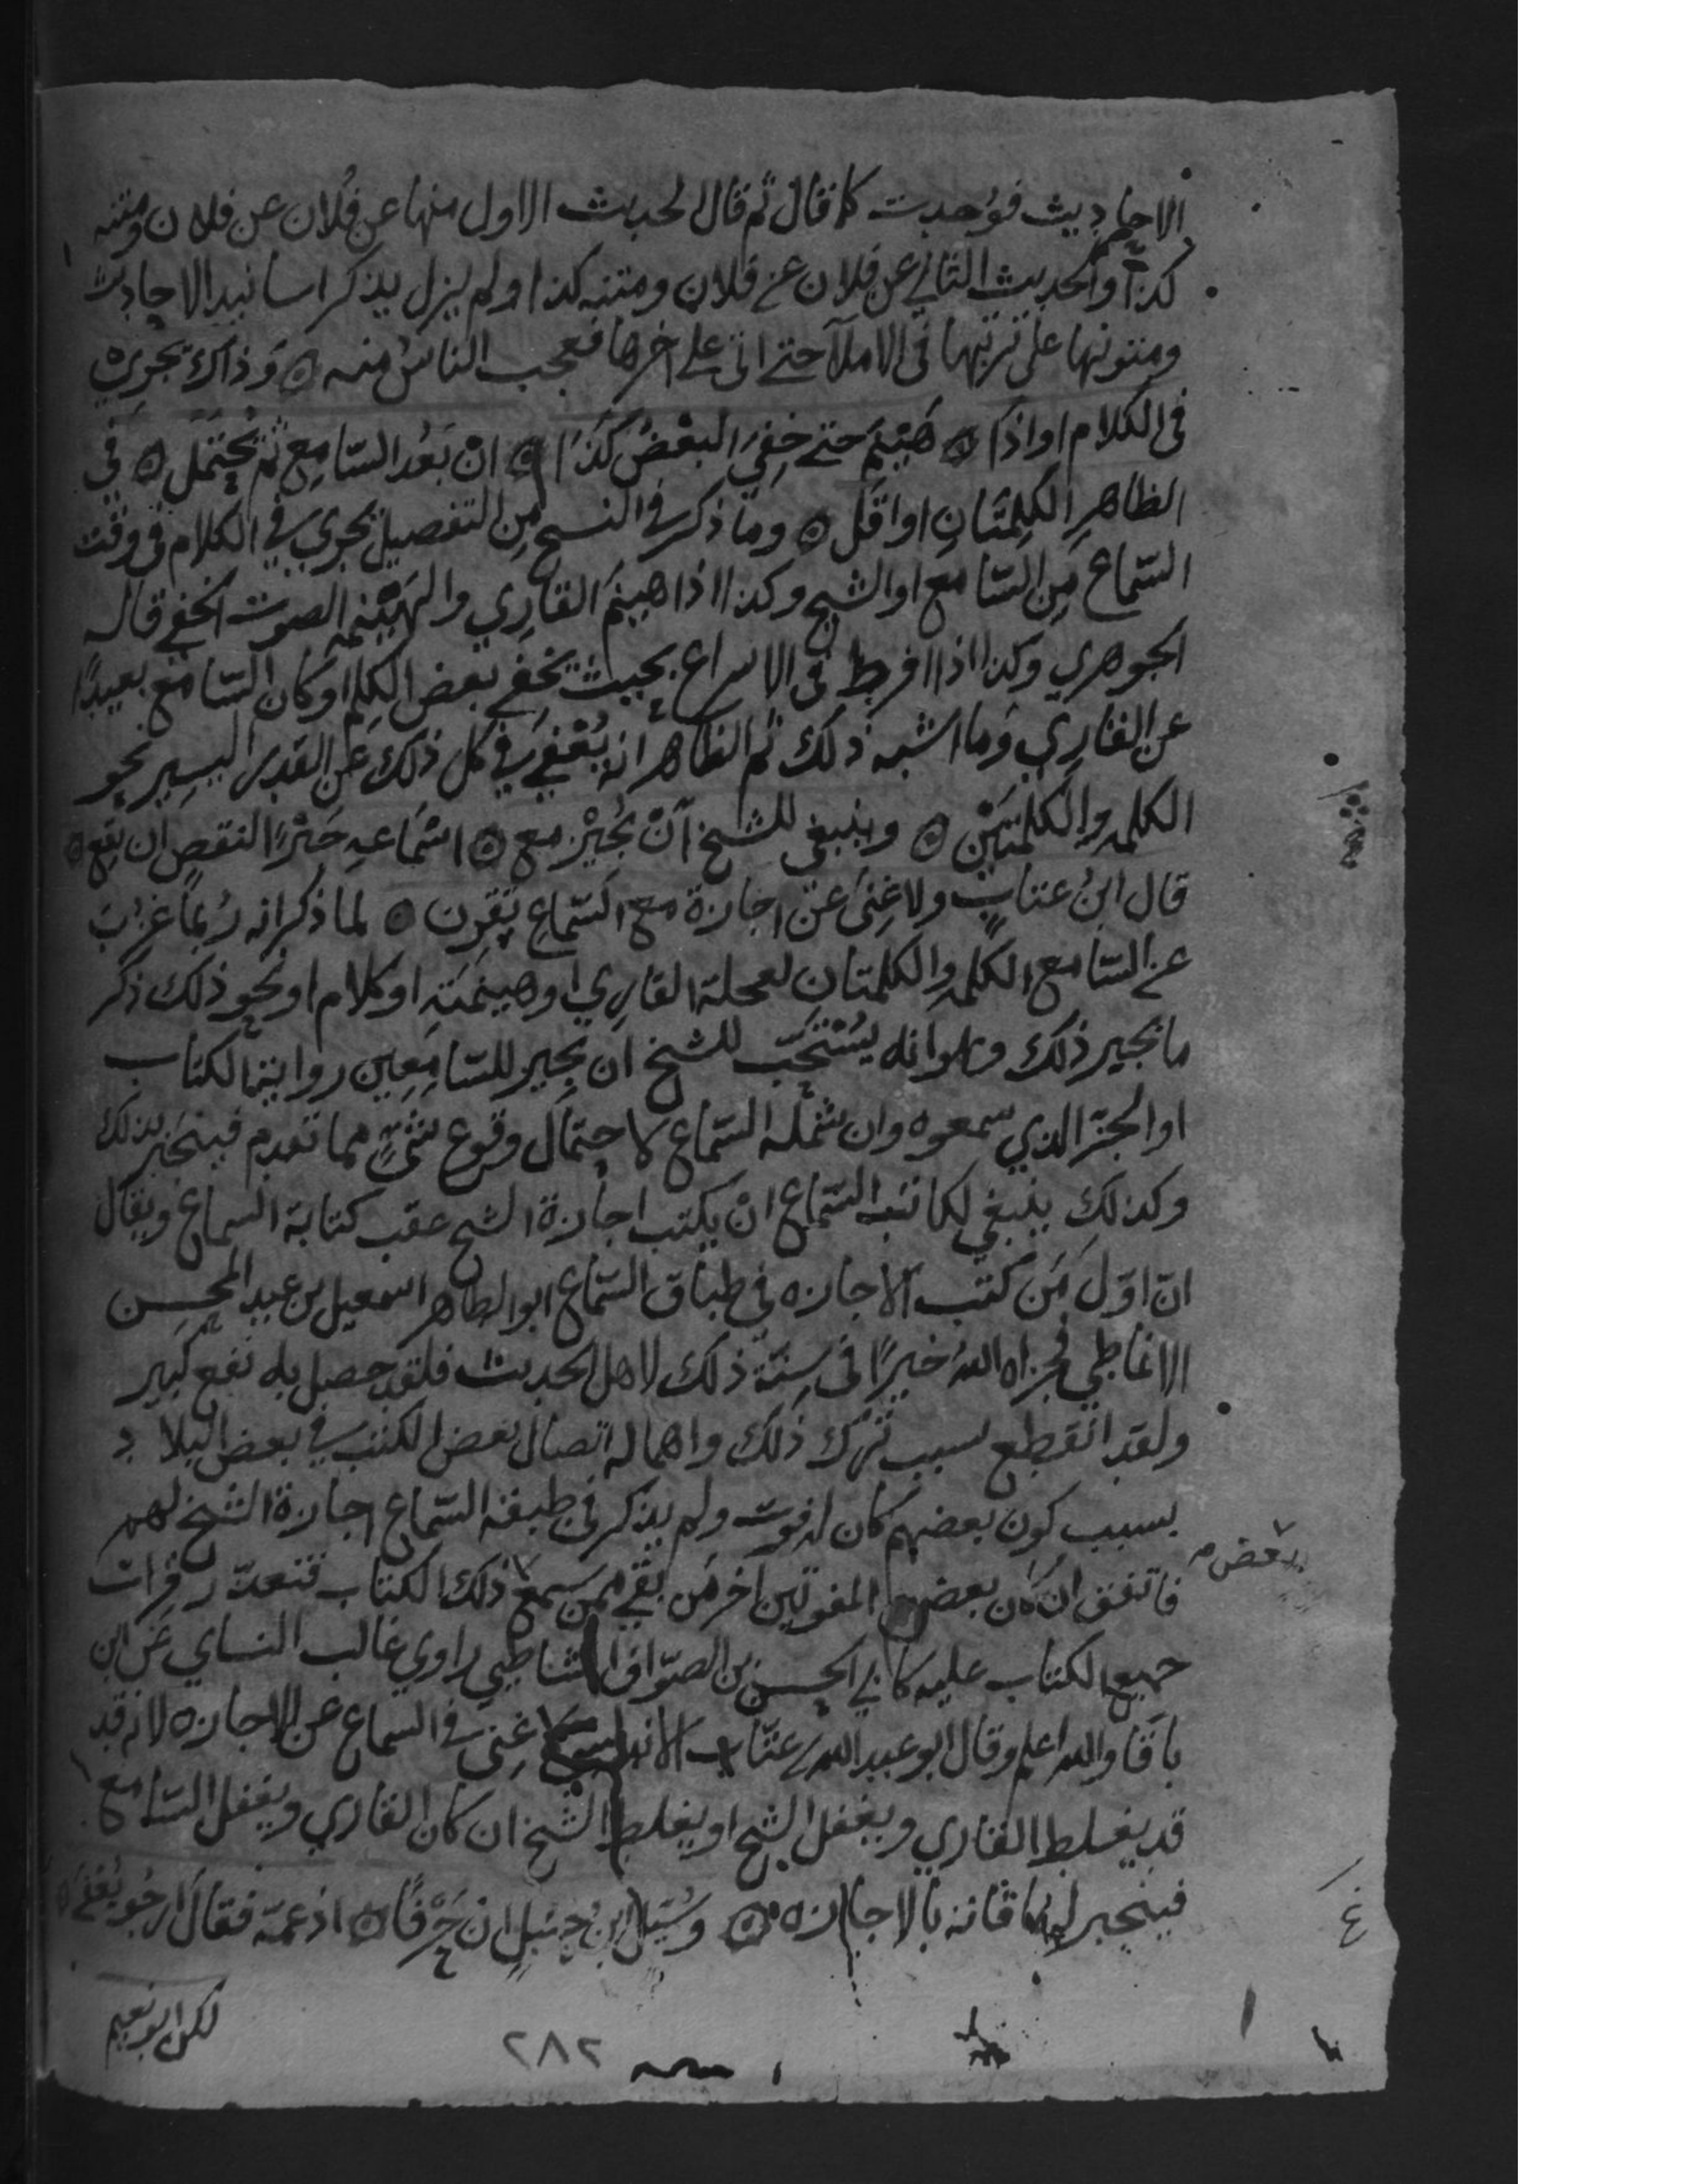 الاحاديث فوُجدت كما قال ثم قال الحديث الاول منها عن فُلان عن فلان ومتنه
كذا والحديث الثاني عن فلان عن فلان ومتنه كذا ولم يزل يذكر اسانيد الاحاديث
ومتونها على ترتيبها في الاملآ حتى اتى على اخرها فعجب الناسُ منه ۞ وَذاك يجري
في الكلام او اذا ۞ هَيْنَمَ حتى خفِيَ البعْضُ كَذَا ۞ انْ بَعُد السّامِع ثم يُحْتَمَل ۞ في
الظاهِرِ الكلِمتَانِ او اقَلّ ۞ وما ذكر في النسخ مِن التفصيل يجري في الكلام في وقت
السّماع مِنَ السّامع او الشيخ وكذا اذا هينمَ القارِي والهَيْنمه الصوت الخفي قاله
الجوهري وكذا اذا افرط في الاسراع بحيث يخفى بعض الكلِم او كان السّامع بعيدًا
عن القارِي وَما اشبه ذلك ثم الظاهر انه يُعْفَى في كل ذلك عن القدر اليسِير نحو
الكلمه والكلمتَيْن ۞ وينبغي للشيخ اَنْ يُجيْز مع ۞ اسْمَاعهِ جَبْرًا لنقصٍ ان يقع ۞
قال ابنُ عتابٍ ولا غِنَى عَن اجازة مع السّماعِ تقرن ۞ لما ذكر انه رُبما عَزبَ
عن السّامع الكلمه والكلمتان لعجلة القارِي او هينمَتِهِ او كلام او نحو ذلك ذكر
ما يجبر ذلك وهو انه يُسْتَحَبّ للشيخ ان يجيز للسّامِعِين رواية الكتاب
او الجزء الذي سمعوه وان شمله السّماع لاحتمال وقوع شيْءٍ مما تقدم فينجَبر بذلك
وكذلك ينبغي لكاتب السّماع انْ يكتب اجازة الشيخ عقب كتابة السماع ويقال
انّ اوّل مَن كتب الاجازه في طباق السّماع ابو الطاهر اسمعيل بن عبد المحسن
الانماطي فجزاه اللهُ خيرًا في سنّة ذلك لاهل الحديث فلقد حصل به نفع كبير
ولقد انقطع بسبب تَرك ذلك واهماله اتصال بعض الكتب في بعض البلاد
بسبب كون بعضهم كان له فوت ولم يذكر في طبقة السّماع اجازة الشيخ لهم
فاتفق ان كان بعض المفوتين اخر مَن بقي ممن سمع بعض ذلك الكتاب فتعذّر قرات
جميع الكتاب عليه كابي الحسن بن الصوّاف الشاطبي راوي غالب النساي عَن ابن
باقَا والله اعلم وقال ابو عبد الله بن عتّاب الاندلسي لا غِنى في السماع عن الاجازه لانه قد
قد يغلط القاري ويغفل الشيخ او يغلط الشيخ ان كان القاري ويغفل السّامع
فينجبر له ما فاته بالاجازه ۞ وَسُئِل ابنُ حنبلٍ ان حَرْفًا ۞ ادغمَه فقالَ ارجُو يُعْفَى ۞
لكن ابو نعيم
٢٨٢